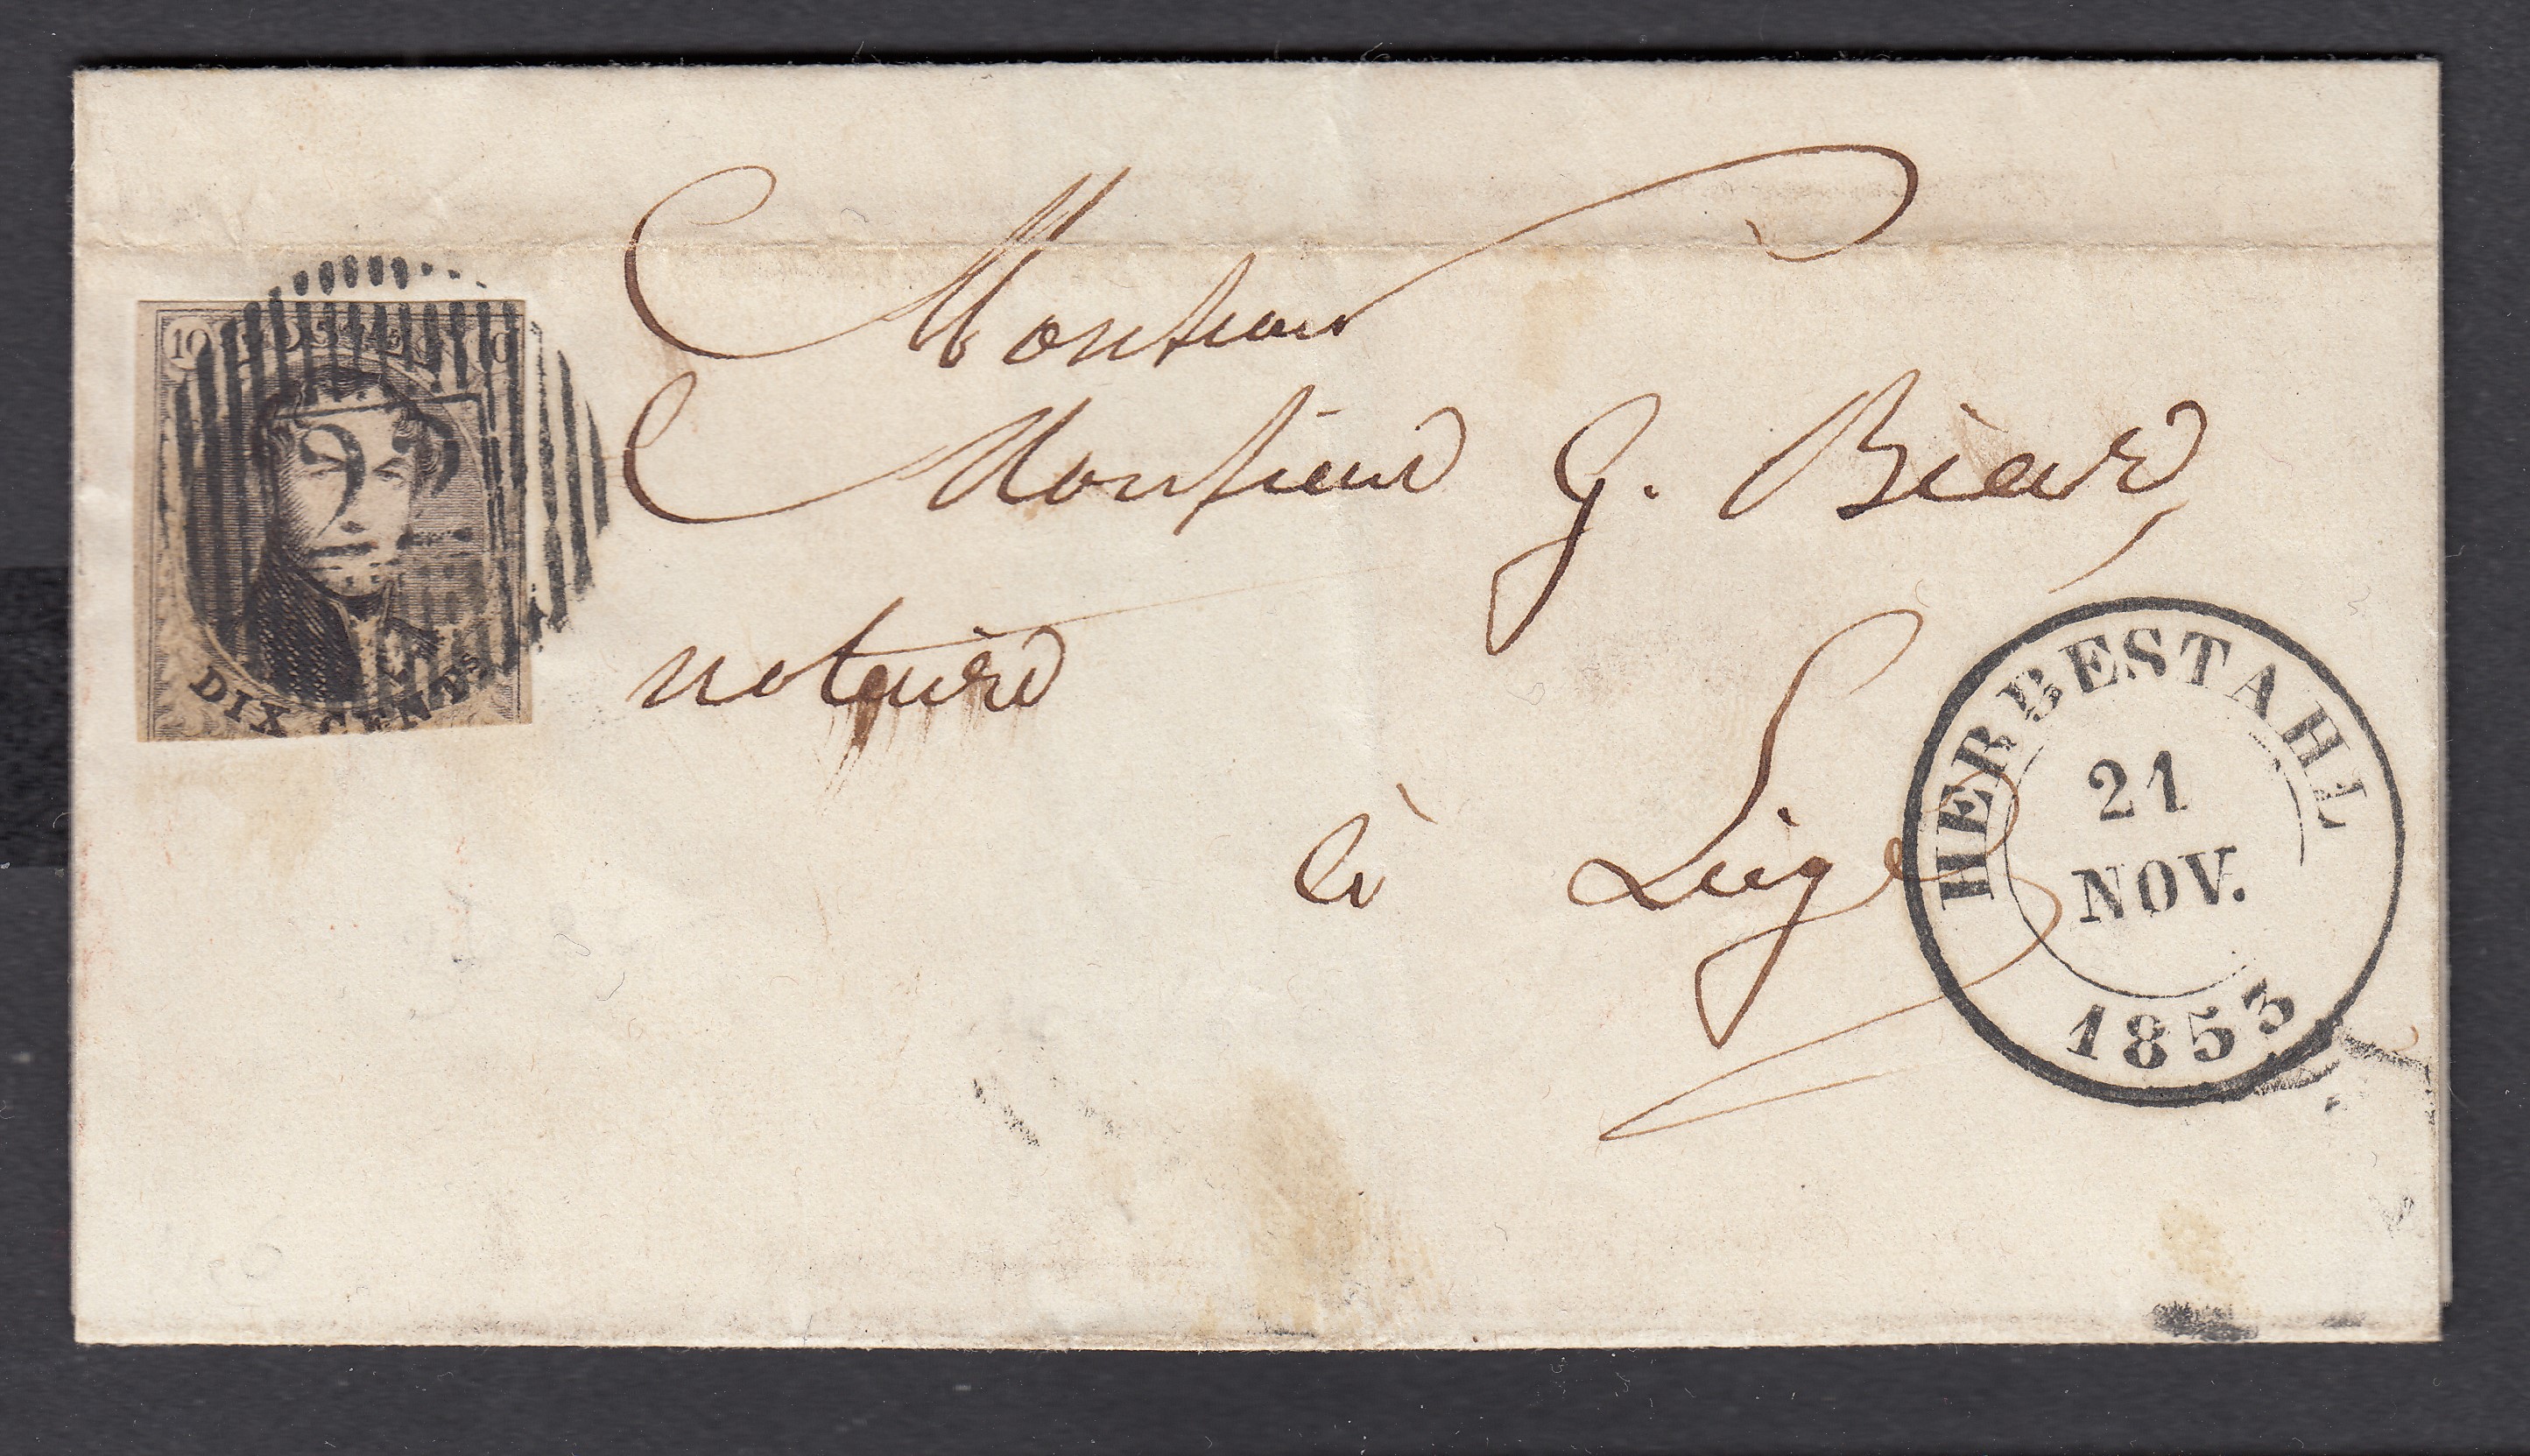 10 POSTES 10
DIX CENTS
Monsieur
Monsieur G. Biar
notaire
à Liége
HERBESTAHL
21
NOV.
1853